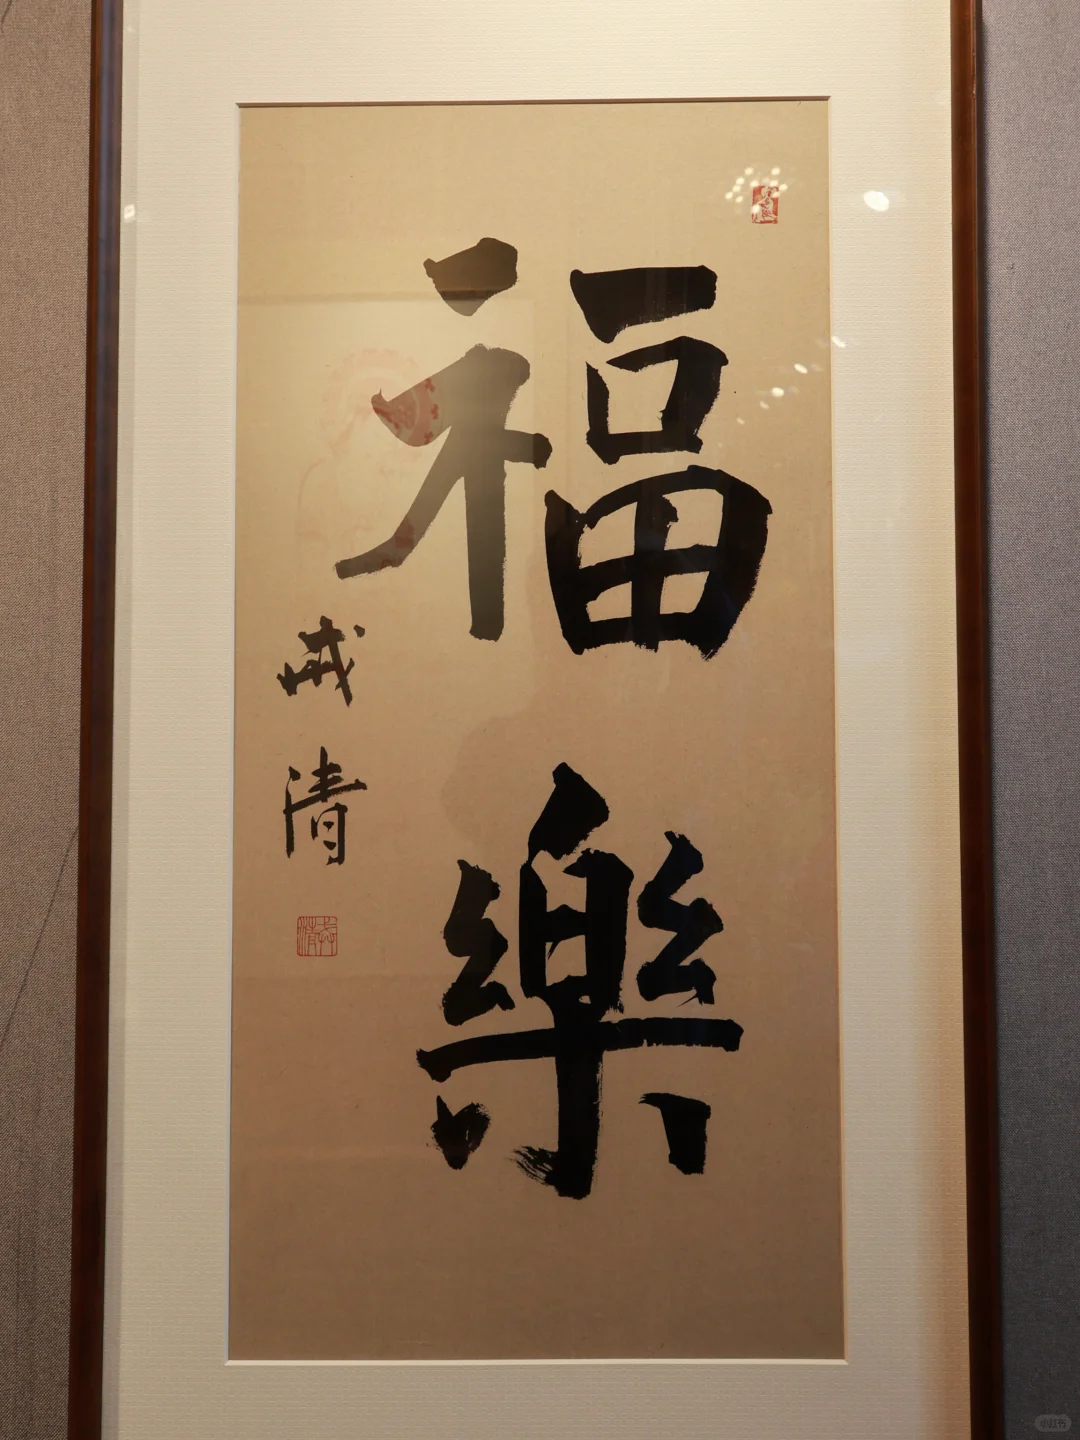 福樂
戒清
小红书